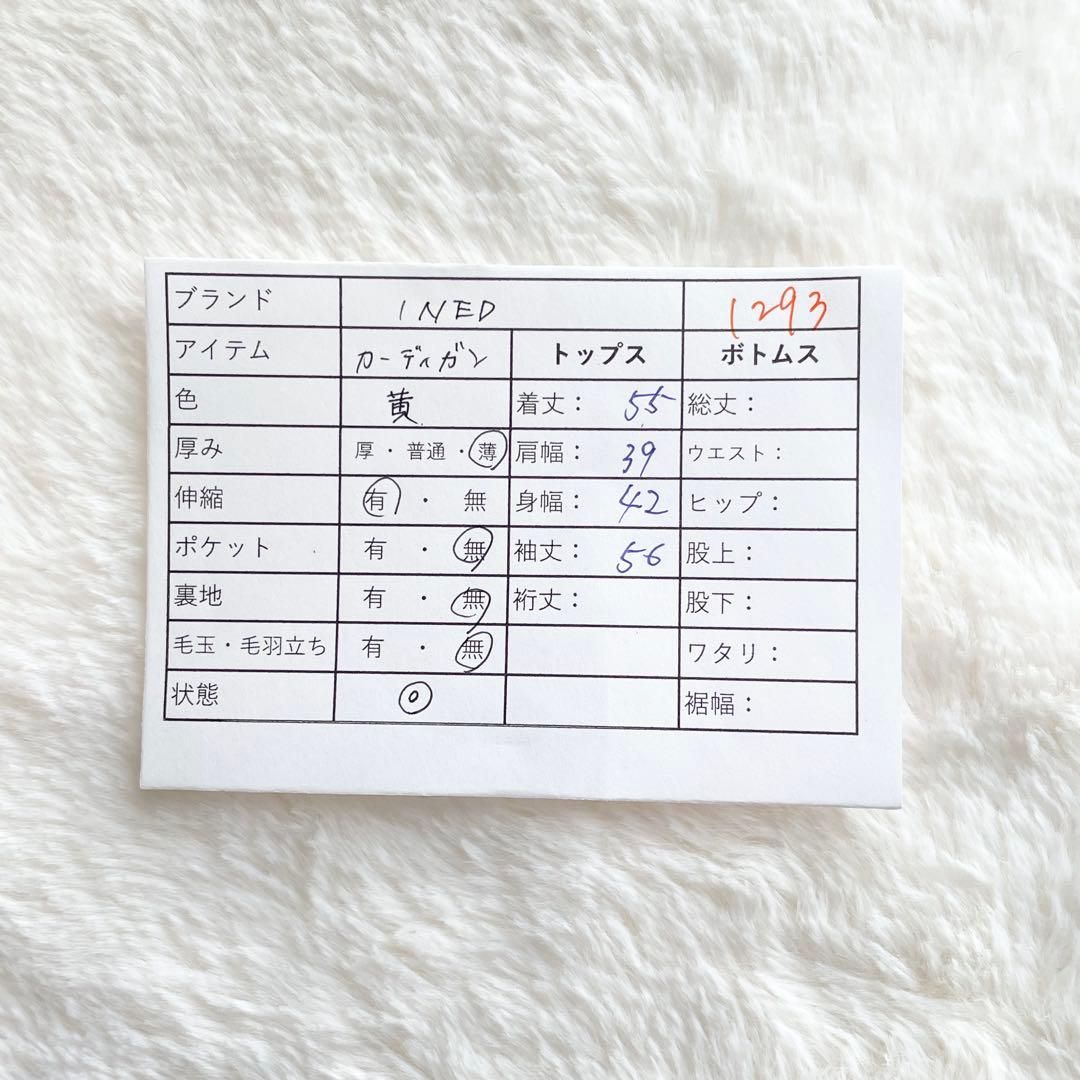 ブランド INED 1293
アイテム カーディガン トップス ボトムス
色 黄 着丈： 55 総丈：
厚み 厚・普通・薄 肩幅： 39 ウエスト：
伸縮 有・無 身幅： 42 ヒップ：
ポケット 有・無 袖丈： 56 股上：
裏地 有・無 裄丈： 股下：
毛玉・毛羽立ち 有・無 ワタリ：
状態 ◎ 裾幅：